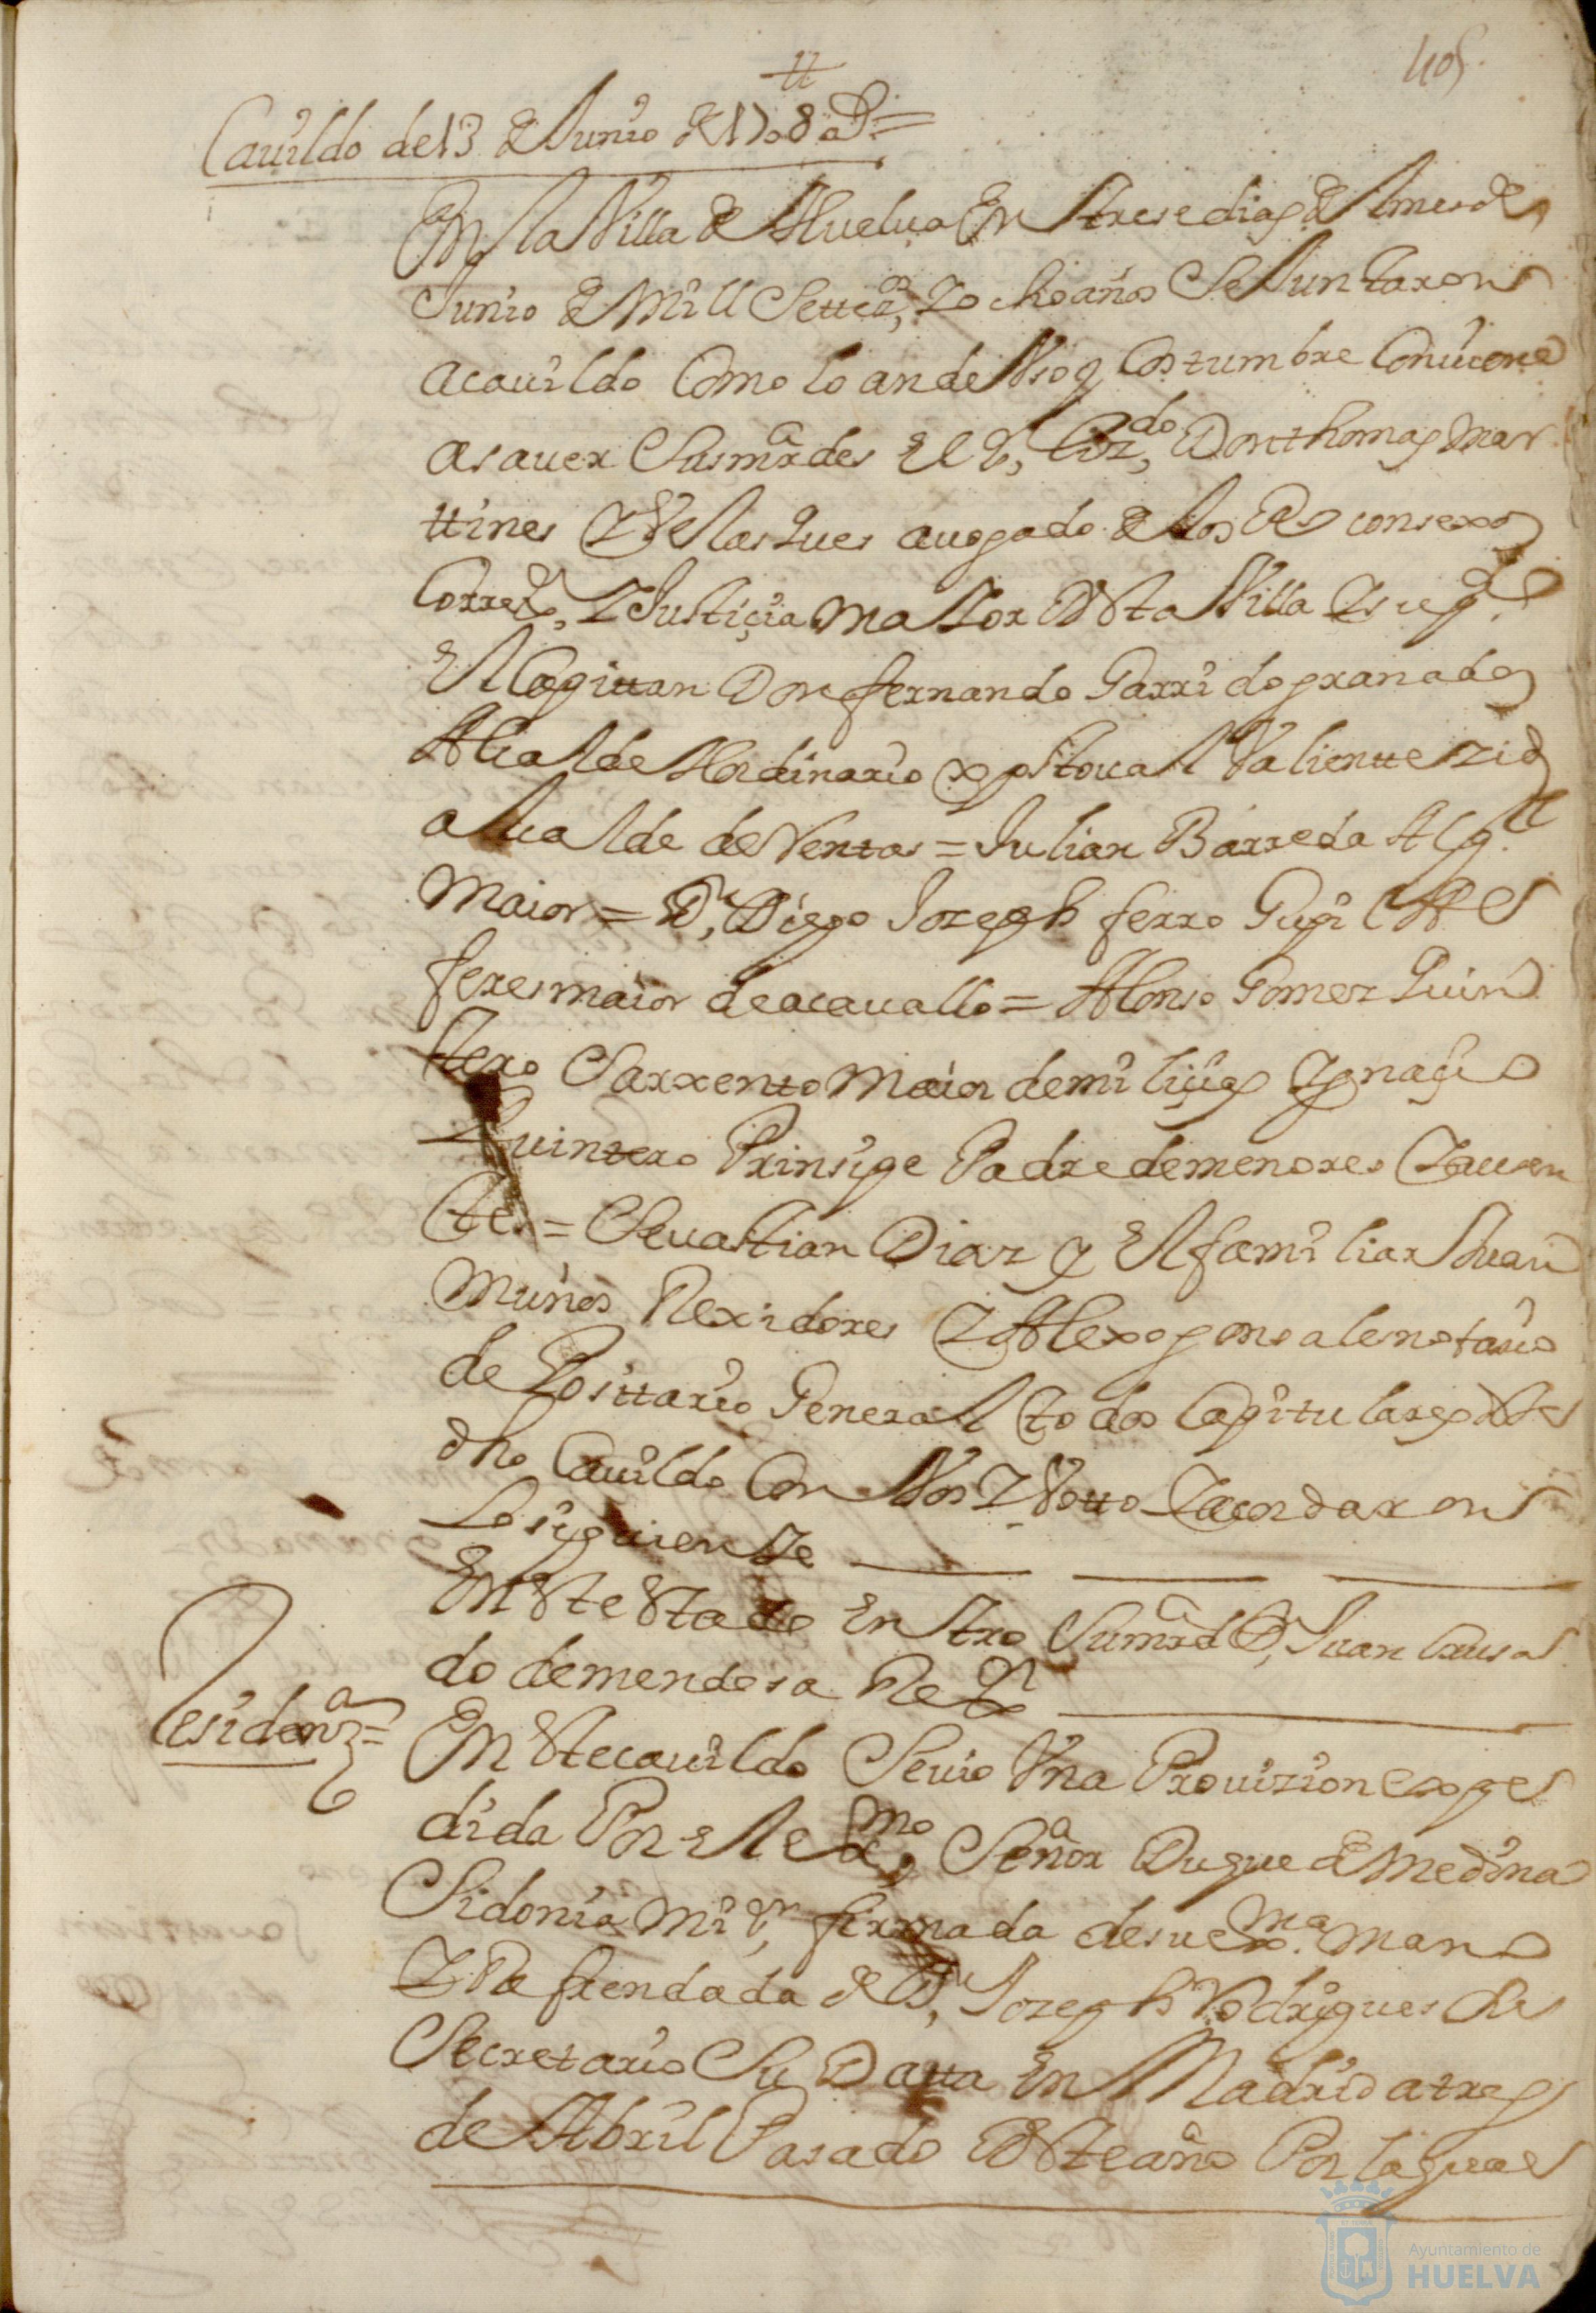 405
Cauildo de 13 de Junio de 1708 as=
En la Villa de Huelua en trese dias del mes de
Junio de Mill Settez.os y ocho años Se Juntaron
a cauildo Como lo an de Vso y Costumbre Conuiene
a sauer Sus mrdes El Sr, Lizdo, Don thomas Mar
ttines y Velasques auogado de los Rs consexos
Correxor, y Justiçia maior desta Villa
El Capittan Don fernando Garrido granados
Alcalde Hordinario xptoual Valientte
alcalde de Ventas = Julian Barreda Alg.l
Maior = Dn, Diego Joseph ferro Gupil Al
feres maior de a cauallo = Alonso Gomez Quin
tero Sarxento Maior de miliçias Ygnaçio
Quintero Prinsipe Padre de menores y ausen
tes = Seuastian Diaz y El familiar Juan
Muños Rexidores y Alexo gonsales notario
de Posittario General todos Capitulares deste
dho Cauildo Con Vos y Votto y acordaron
Lo siguiente
En este estado entro Su mrd Dn, Juan Crusa
do de mendosa Rexor
Residenza=
En este cauildo Se uio Vna Prouizion expe
dida Por el exmo, Señor Duque de Medina
Sidonia mi Sr, firmada de su exma. mano
y Refrendada de Dn, Joseph Rodrigues Su
Secretario Su Datta en Madrid a tres
de Abril Pasado deste año Por la qual
Ayuntamiento de
HUELVA